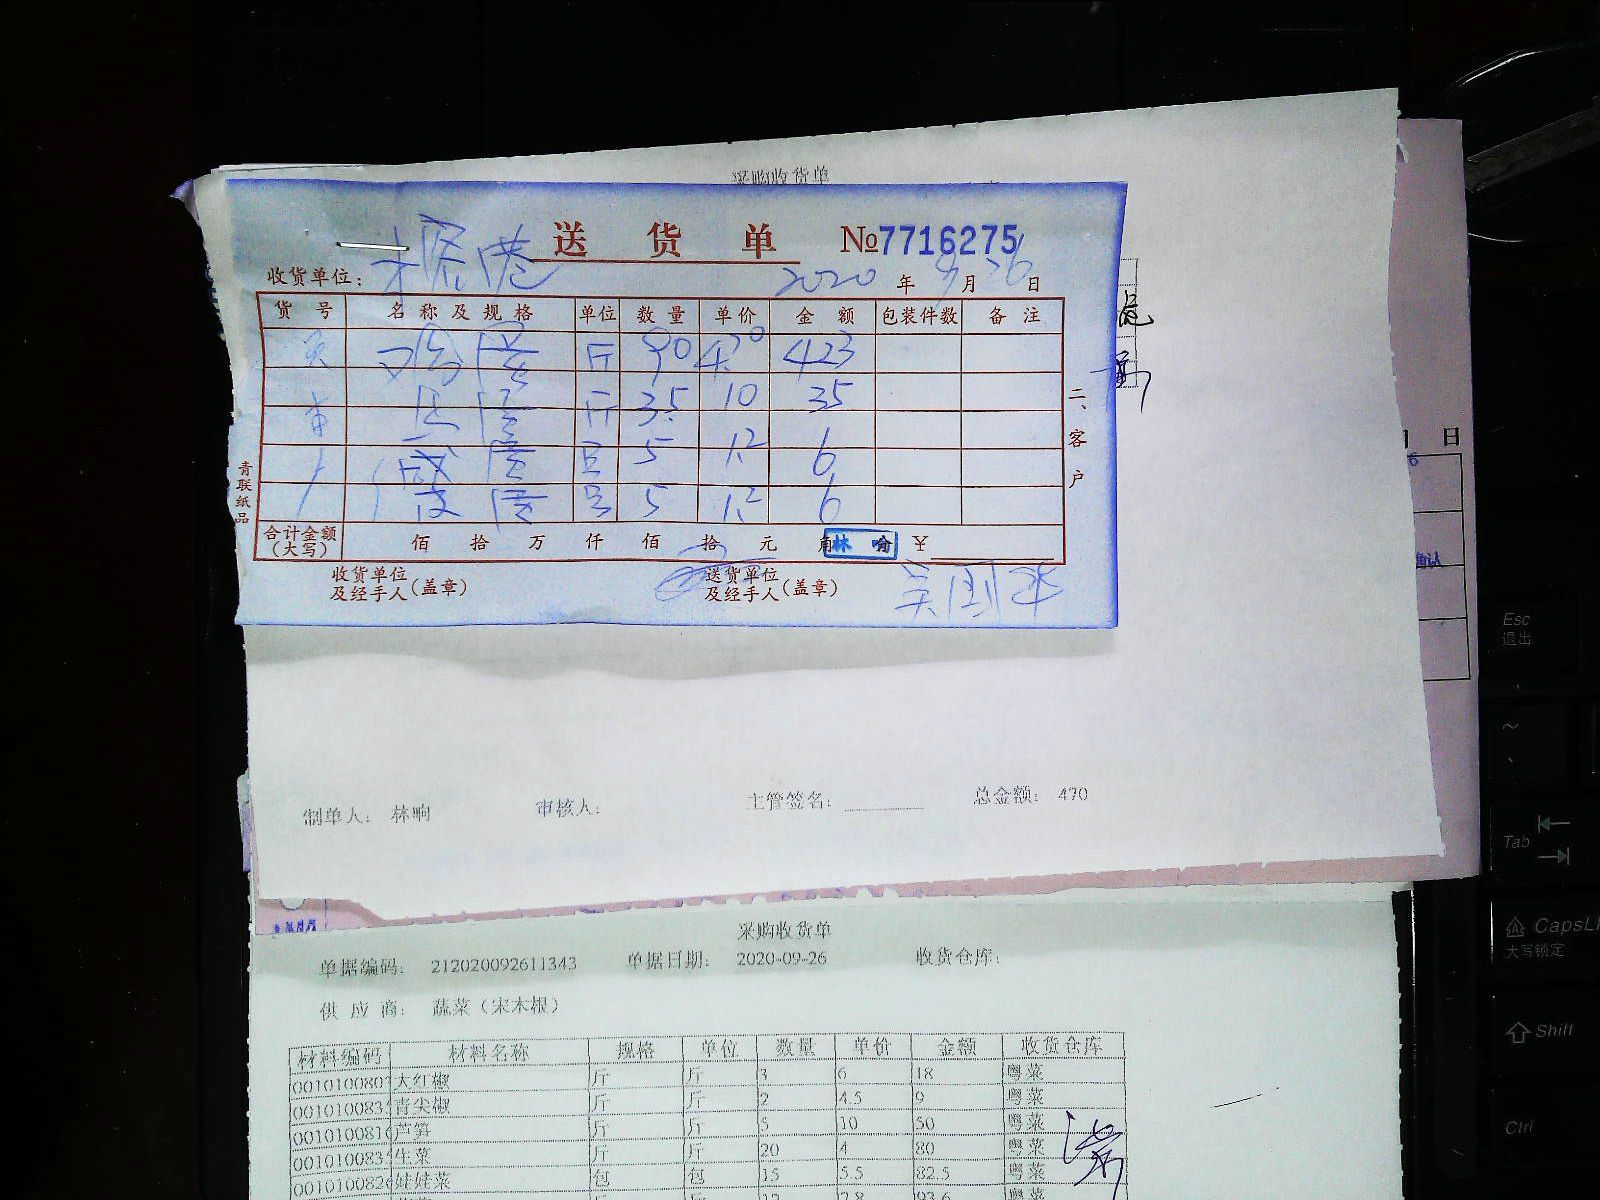 采购收货单
送货单 №7716275
收货单位： 2020年9月26日
货号 名称及规格 单位 数量 单价 金额 包装件数 备注
鸡蛋 斤 90 4.70 423
蛋 斤 3.5 10 35
咸蛋 5 1.2 6
皮蛋 5 1.2 6
合计金额（大写） 佰 拾 万 仟 佰 拾 元 角 分 ¥
收货单位及经手人（盖章） 送货单位及经手人（盖章）
二、客户
青联纸品
日
确认
制单人： 林响 审核人： 主管签名： 总金额： 470
采购收货单
单据编码： 212020092611343 单据日期： 2020-09-26 收货仓库：
供应商： 蔬菜（宋木根）
材料编码 材料名称 规格 单位 数量 单价 金额 收货仓库
0010100807 大红椒 斤 斤 3 6 18 粤菜
001010083 青尖椒 斤 斤 2 4.5 9 粤菜
001010081 芦笋 斤 斤 5 10 50 粤菜
001010083 生菜 斤 斤 20 4 80 粤菜
001010082 娃娃菜 包 包 15 5.5 82.5 粤菜
斤 斤 12 2.8 93.6 粤菜
Esc
退出
~
Tab
CapsL
大写锁定
Shift
Ctrl